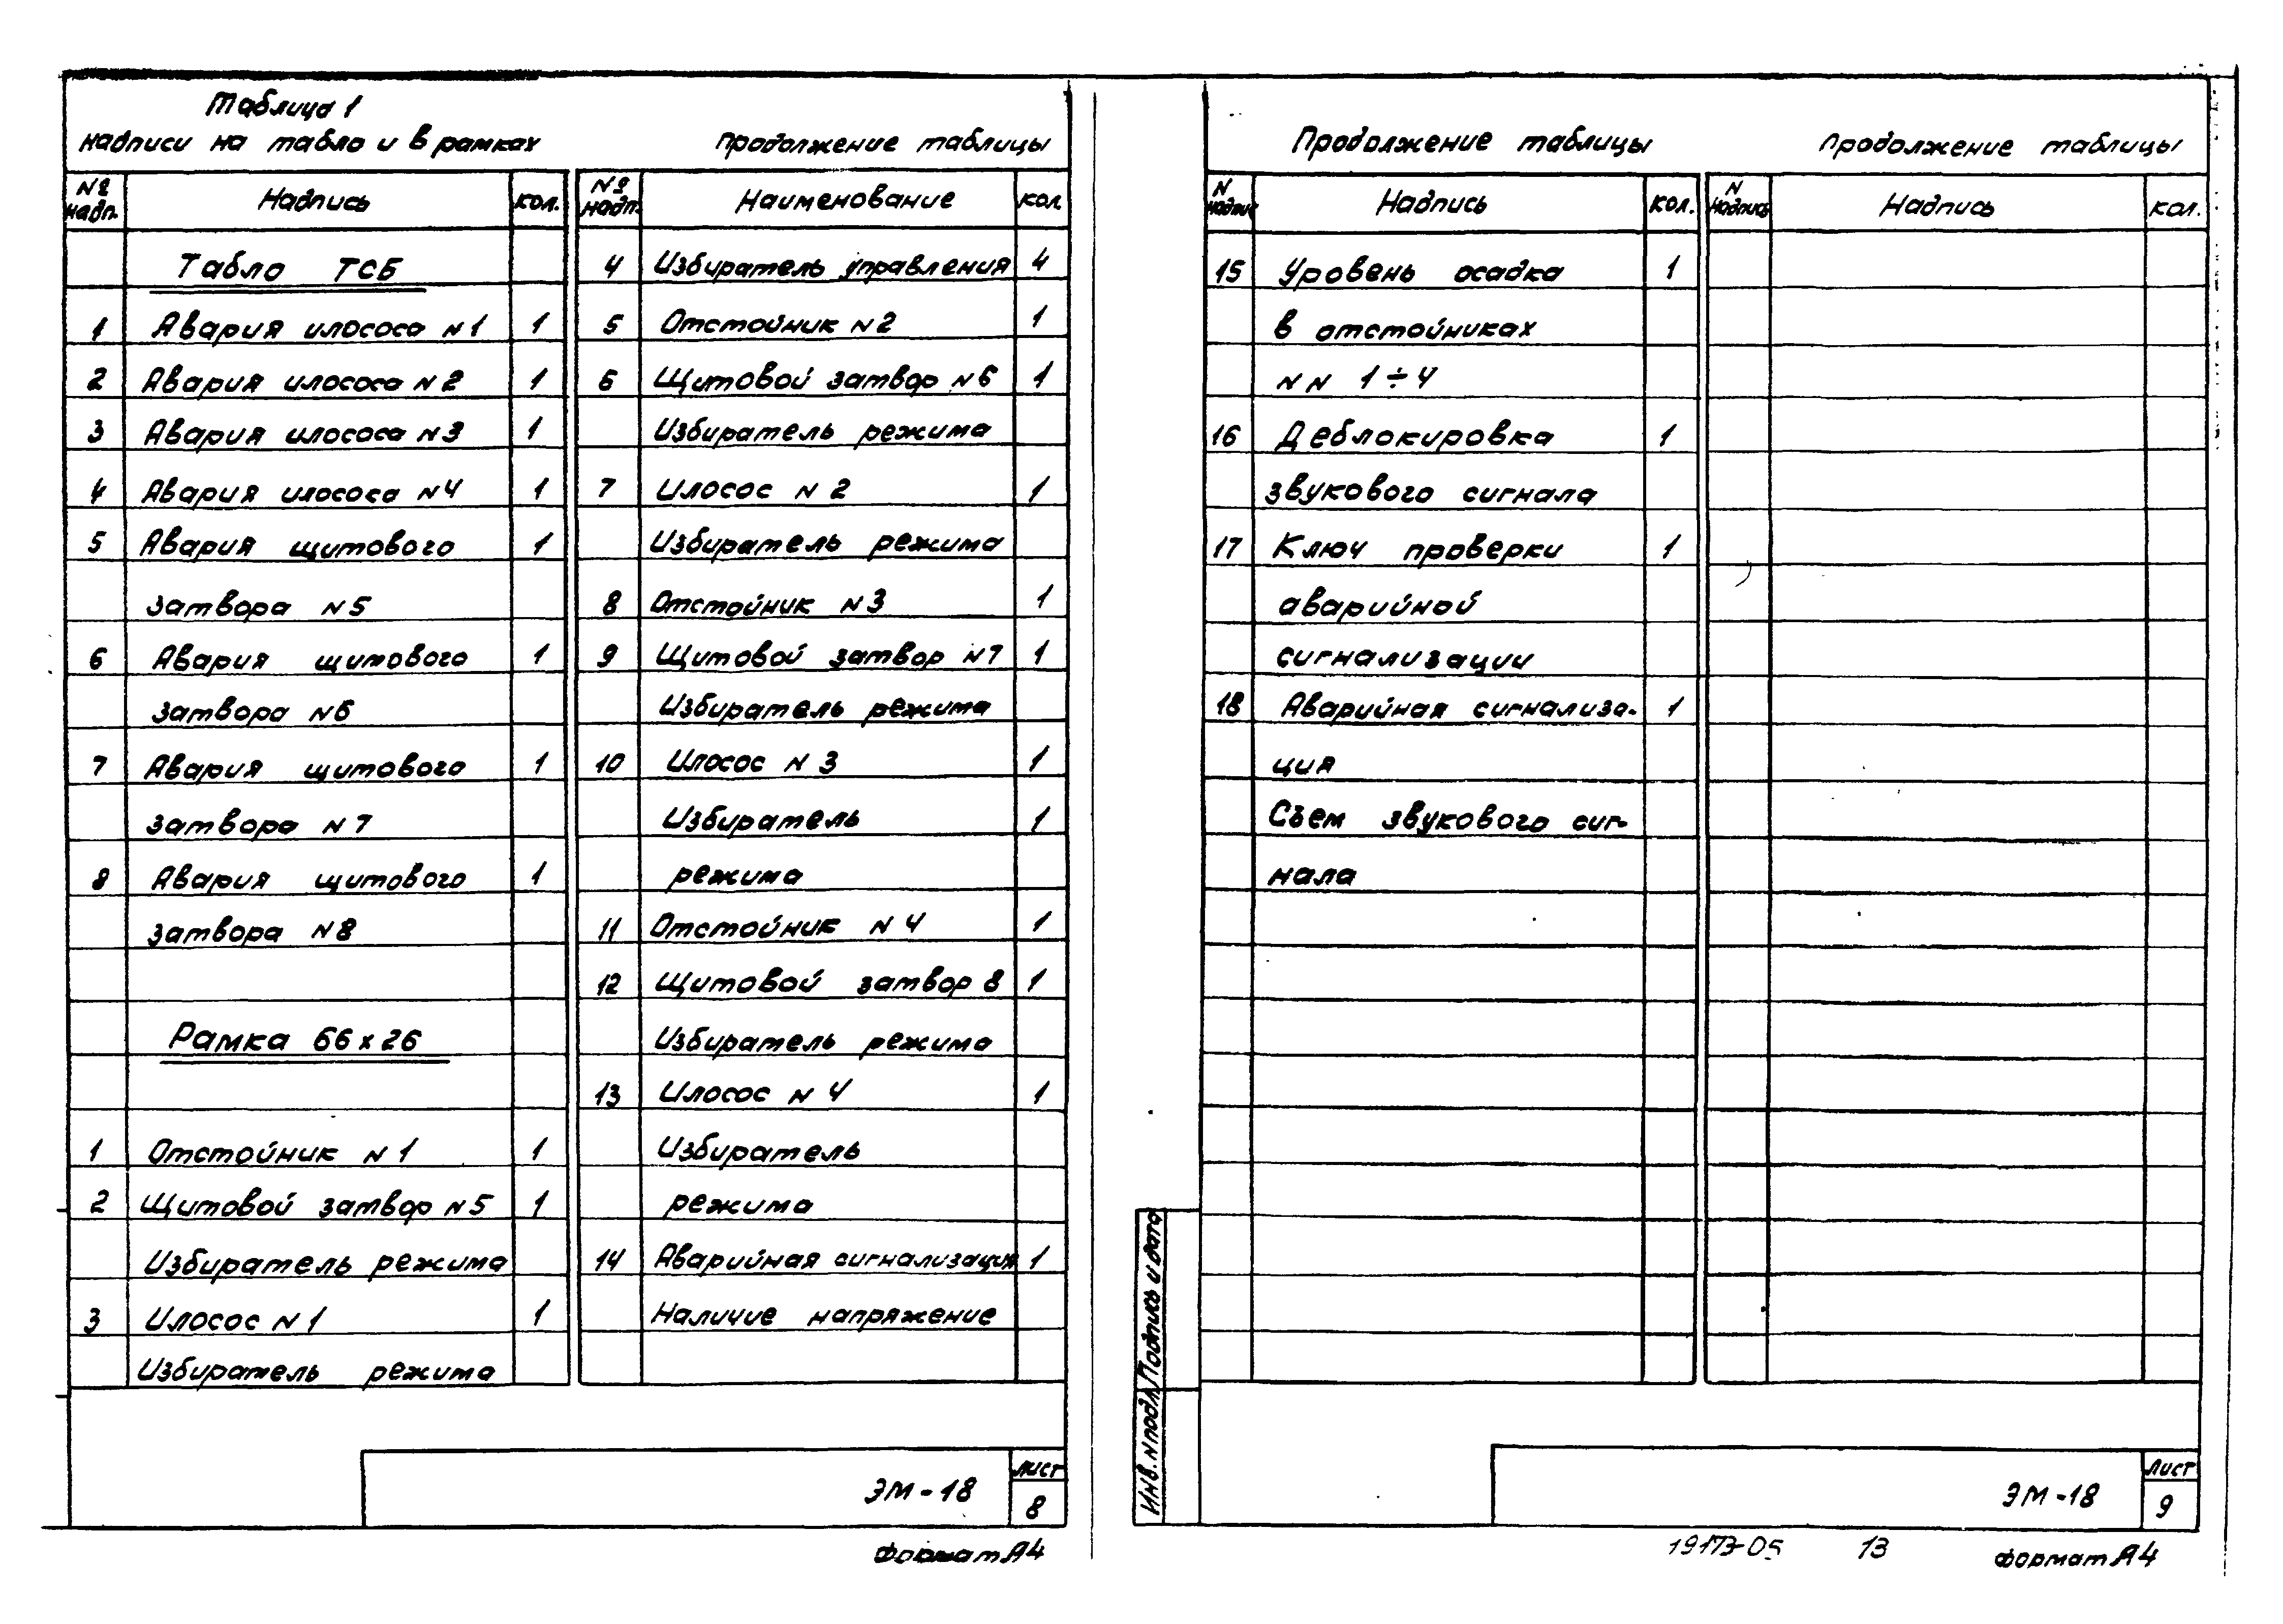 Таблица 1
Надписи на табло и в рамках
№ надп. Надпись кол.
Табло ТСБ
1 Авария илососа N1 1
2 Авария илососа N2 1
3 Авария илососа N3 1
4 Авария илососа N4 1
5 Авария щитового 1
затвора N5
6 Авария щитового 1
затвора N6
7 Авария щитового 1
затвора N7
8 Авария щитового 1
затвора N8
Рамка 66x26
1 Отстойник N1 1
2 Щитовой затвор N5 1
Избиратель режима
3 Илосос N1 1
Избиратель режима
Продолжение таблицы
№ надп. Наименование кол.
4 Избиратель управления 4
5 Отстойник N2 1
6 Щитовой затвор N6 1
Избиратель режима
7 Илосос N2 1
Избиратель режима
8 Отстойник N3 1
9 Щитовой затвор N7 1
Избиратель режима
10 Илосос N3 1
Избиратель 1
режима
11 Отстойник N4 1
12 Щитовой затвор 8 1
Избиратель режима
13 Илосос N4 1
Избиратель
режима
14 Аварийная сигнализация 1
Наличие напряжение
ЭМ-18
Лист
8
Формат А4
Продолжение таблицы
N надпис Надпись кол.
15 Уровень осадка 1
в отстойниках
NN 1÷4
16 Деблокировка 1
звукового сигнала
17 Ключ проверки 1
аварийной
сигнализации
18 Аварийная сигнализа- 1
ция
Съем звукового сиг-
нала
Продолжение таблицы
N надпись Надпись кол.
Инв. N подл. Подпись и дата
ЭМ-18
Лист
9
19173-05 13
Формат А4